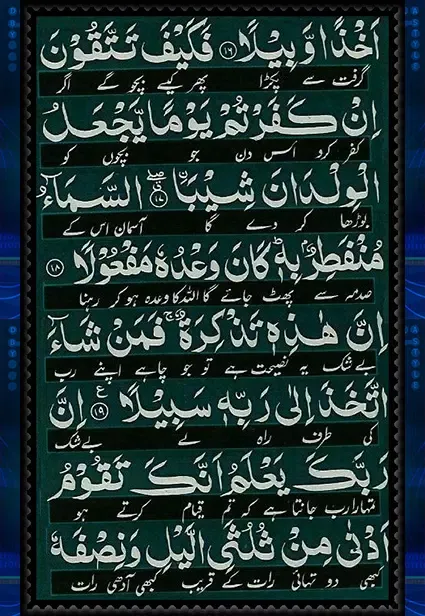 اَخْذًا وَّبِيْلًا ﴿۱۶﴾ فَكَيْفَ تَتَّقُوْنَ
گرفت سے پکڑا پھر کیسے بچو گے اگر
اِنْ كَفَرْتُمْ يَوْمًا يَّجْعَلُ
کفر کرو اس دن جو بچوں کو
الْوِلْدَانَ شِيْبَا ﴿۱۷﴾ السَّمَآءُ
بوڑھا کر دے گا آسمان اس کے
مُنْفَطِرٌۢ بِهٖ ؕ كَانَ وَعْدُهٗ مَفْعُوْلًا ﴿۱۸﴾
صدمہ سے پھٹ جائے گا اللہ کا وعدہ ہو کر رہنا
اِنَّ هٰذِهٖ تَذْكِرَةٌ ۚ فَمَنْ شَآءَ
بے شک یہ نصیحت ہے تو جو چاہے اپنے رب
اتَّخَذَ اِلٰى رَبِّهٖ سَبِيْلًا ﴿۱۹﴾ ع اِنَّ
کی طرف راہ لے بے شک
رَبَّكَ يَعْلَمُ اَنَّكَ تَقُوْمُ
تمہارا رب جانتا ہے کہ تم قیام کرتے ہو
اَدْنٰى مِنْ ثُلُثَيِ الَّيْلِ وَنِصْفَهٗ
کبھی دو تہائی رات کے قریب کبھی آدھی رات